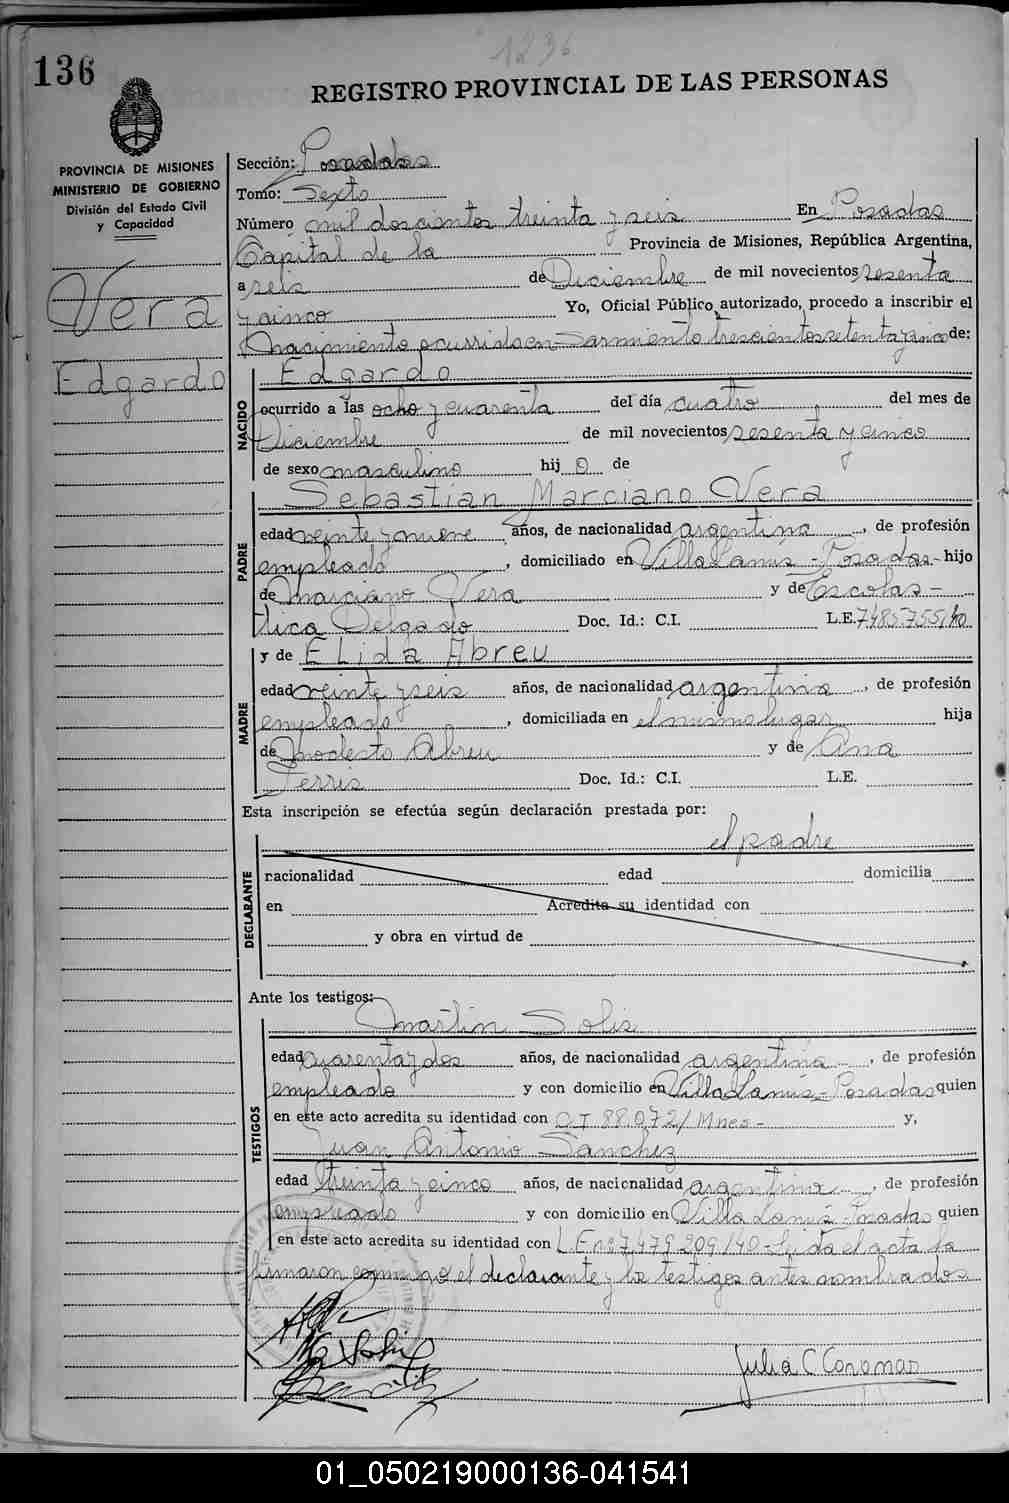 1236
136
REGISTRO PROVINCIAL DE LAS PERSONAS
PROVINCIA DE MISIONES
MINISTERIO DE GOBIERNO
División del Estado Civil
y Capacidad
Vera
Edgardo
Sección: Posadas
Tomo: Sexto
Número mil doscientos treinta y seis En Posadas
Capital de la Provincia de Misiones, República Argentina,
a seis de Diciembre de mil novecientos sesenta
y cinco Yo, Oficial Público autorizado, procedo a inscribir el
Nacimiento ocurrido en Sarmiento trescientos setenta y cinco de:
NACIDO
Edgardo
ocurrido a las ocho y cuarenta del día cuatro del mes de
Diciembre de mil novecientos sesenta y cinco
de sexo masculino hij o de
PADRE
Sebastian Marciano Vera
edad veinte y nueve años, de nacionalidad argentina, de profesión
empleado, domiciliado en Villa Lanús - Posadas - hijo
de Marciano Vera y de Escolas-
tica Delgado Doc. Id.: C.I. L.E. 7485755/40
y de Elida Abreu
MADRE
edad veinte y seis años, de nacionalidad argentina, de profesión
empleado, domiciliada en el mismo lugar hija
de Modesto Abreu y de Ana
Ferris Doc. Id.: C.I. L.E.
Esta inscripción se efectúa según declaración prestada por:
el padre
DECLARANTE
racionalidad edad domicilia
en Acredita su identidad con
y obra en virtud de
Ante los testigos:
Martin Solis
TESTIGOS
edad cuarenta y dos años, de nacionalidad argentina, de profesión
empleado y con domicilio en Villa Lanús - Posadas quien
en este acto acredita su identidad con C I 88.072/Mnes- y,
Juan Antonio Sanchez
edad treinta y cinco años, de nacionalidad argentina, de profesión
empleado y con domicilio en Villa Lanús - Posadas quien
en este acto acredita su identidad con L.E nº 7.479.209/40 - Leida el acta la
firmaron conmigo el declarante y los testigos antes nombrados
Julia C Coronar
01_050219000136-041541